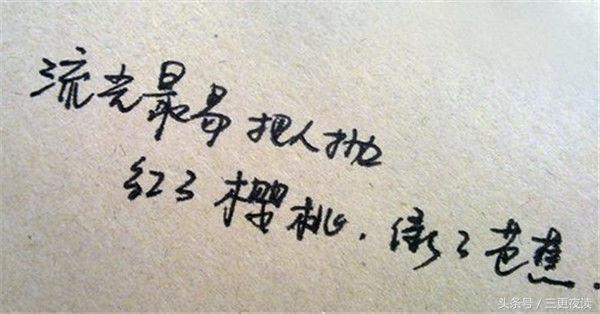 流光最易把人抛
红了樱桃.绿了芭蕉.
头条号/三更夜读